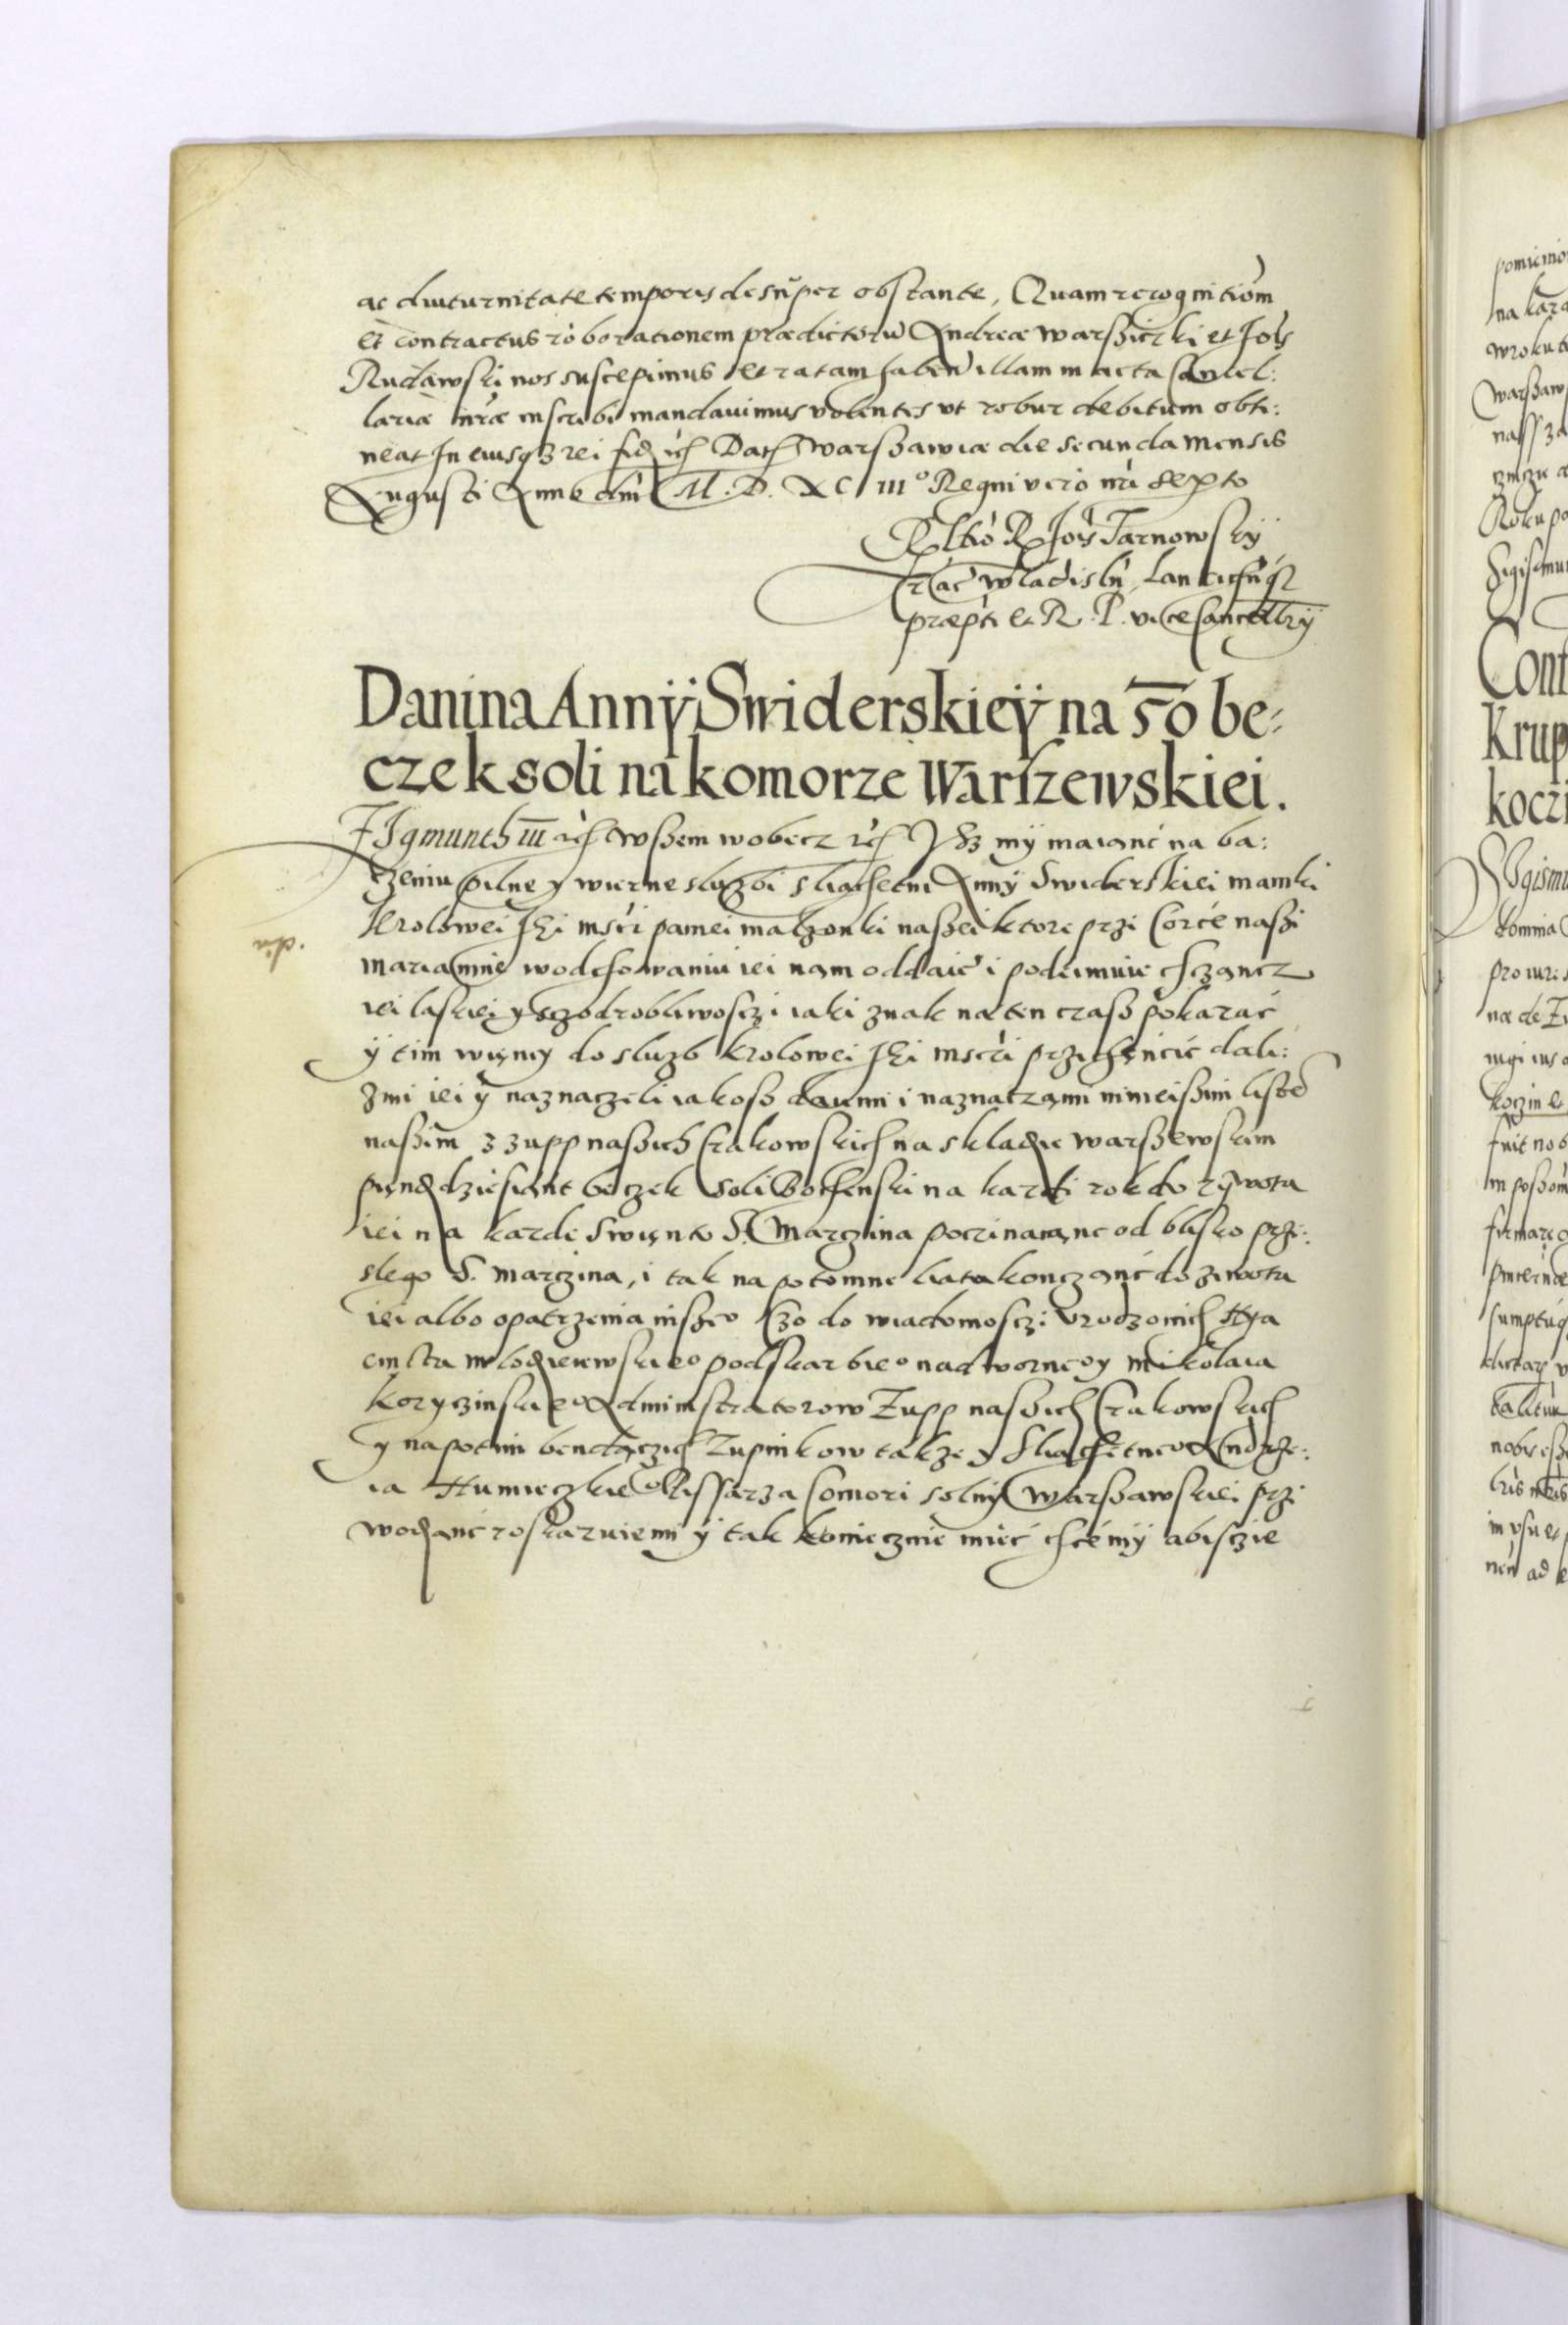 ac diuturnitate temporis desuper obstante, Quam recognitiom
et contractus roborationem prædictorū Andreæ Warszicki et Jois
Rudawski nos suscepimus et ratam haben illam in acta Cancel:
lariæ nræ inscribi mandauimus volentes vt robur debitum obti:
neat In cuius qз rei fid ich Dat Warszawiæ die secunda mensis
Augusti Anno dni M. D. XC IIIo Regni vero nri Sexto
Rltio R Jois Tarnowskÿ
Crac Wladisln Lancichn qz
præpti et R. P. vice Cancellrÿ
Danina Annÿ Swiderskieÿ na 50 be:
czek soli na komorze Warszewskiei.
ZIgmunth III ich wszem wobecz ich Jsz mÿ maianć na ba:
czeniu pilne y wierne sluzbi sliachetni Annÿ Swiderskiei mamki
Krolowei Jei msci paniei malzonki naszei ktore przi Corce naszi
mariamnie wodchowaniu iei nam oddaie i podeimuie chczancz
iei laskiei y sczodrobliwosczi iaki znak na ten czasz pokazać
ÿ tim wiency do sluzb krolowei Jei mscii przichęncić dali:
zmi iei y naznaczeli iakosz daiemi i naznaczami ninieiszim listē
naszim z zupp naszich Crakowskich na skladzie warszewskim
piendzdziesiant beczek soli Bochenski na kazdi rok do zÿwota
iei na kazde swiento S. Marczina poczinaianc od blisko prze:
slego S. Marczina, i tak na potomne liata konczanć do ziwota
iei albo opatrzenia inszeo Czo do wiadomosczi vrodzonich Hya
cinta mlodzieiewskieo podskarbieo nadworneo y Mikolaia
Koryczinskieo Administratorow Zupp naszich Crakowskich
y napotim bendączich Zupnikow takze y Sliachetneo Andrze:
ia Humieczkieo Pissarza Comori solny Warszawskiei przi
wodzanć roskazuiemi ÿ tak koniecznie mieć chcemÿ abisczie